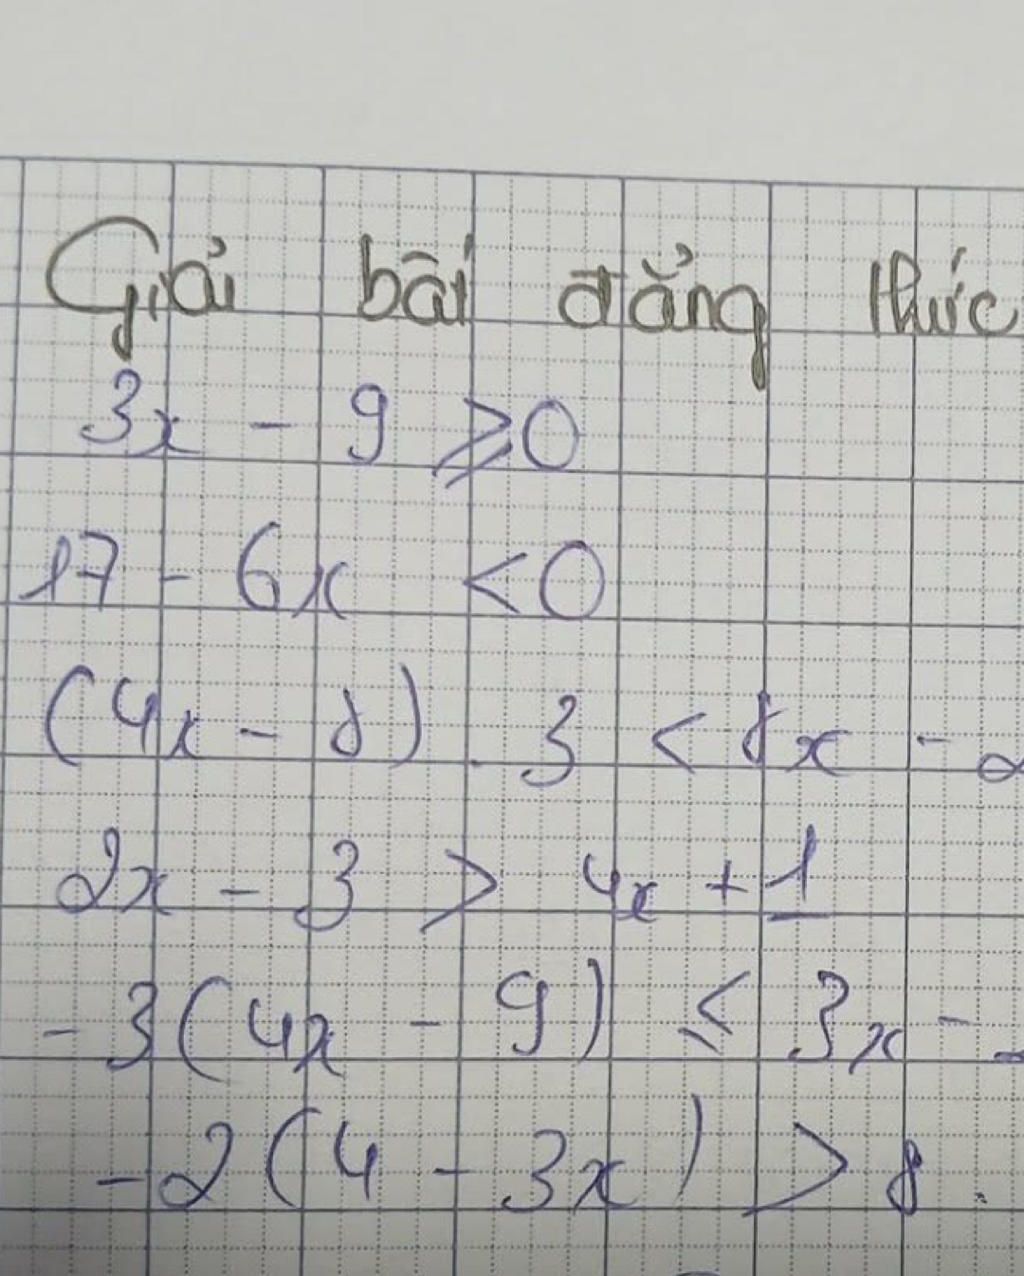 Giải bất đẳng thức
3x - 9 ⩾ 0
17 - 6x < 0
(4x - 8) . 3 < 8x - 2
2x - 3 > 4x + 1
-3(4x - 9) ≤ 3x -
-2(4 - 3x) > 8.